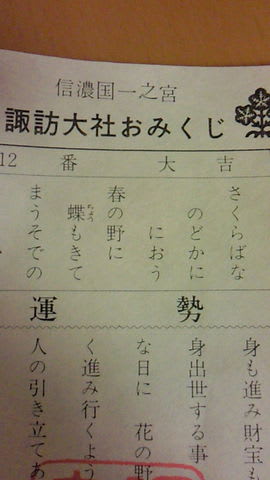 信濃国一之宮
諏訪大社おみくじ
12 番 大 吉
さくらばな
のどかに
におう
春の野に
蝶もきて
ちょう
まうそでの
運 勢
身も進み財宝も
身出世する事
な日に 花の野
く進み行くよう
人の引き立てあ